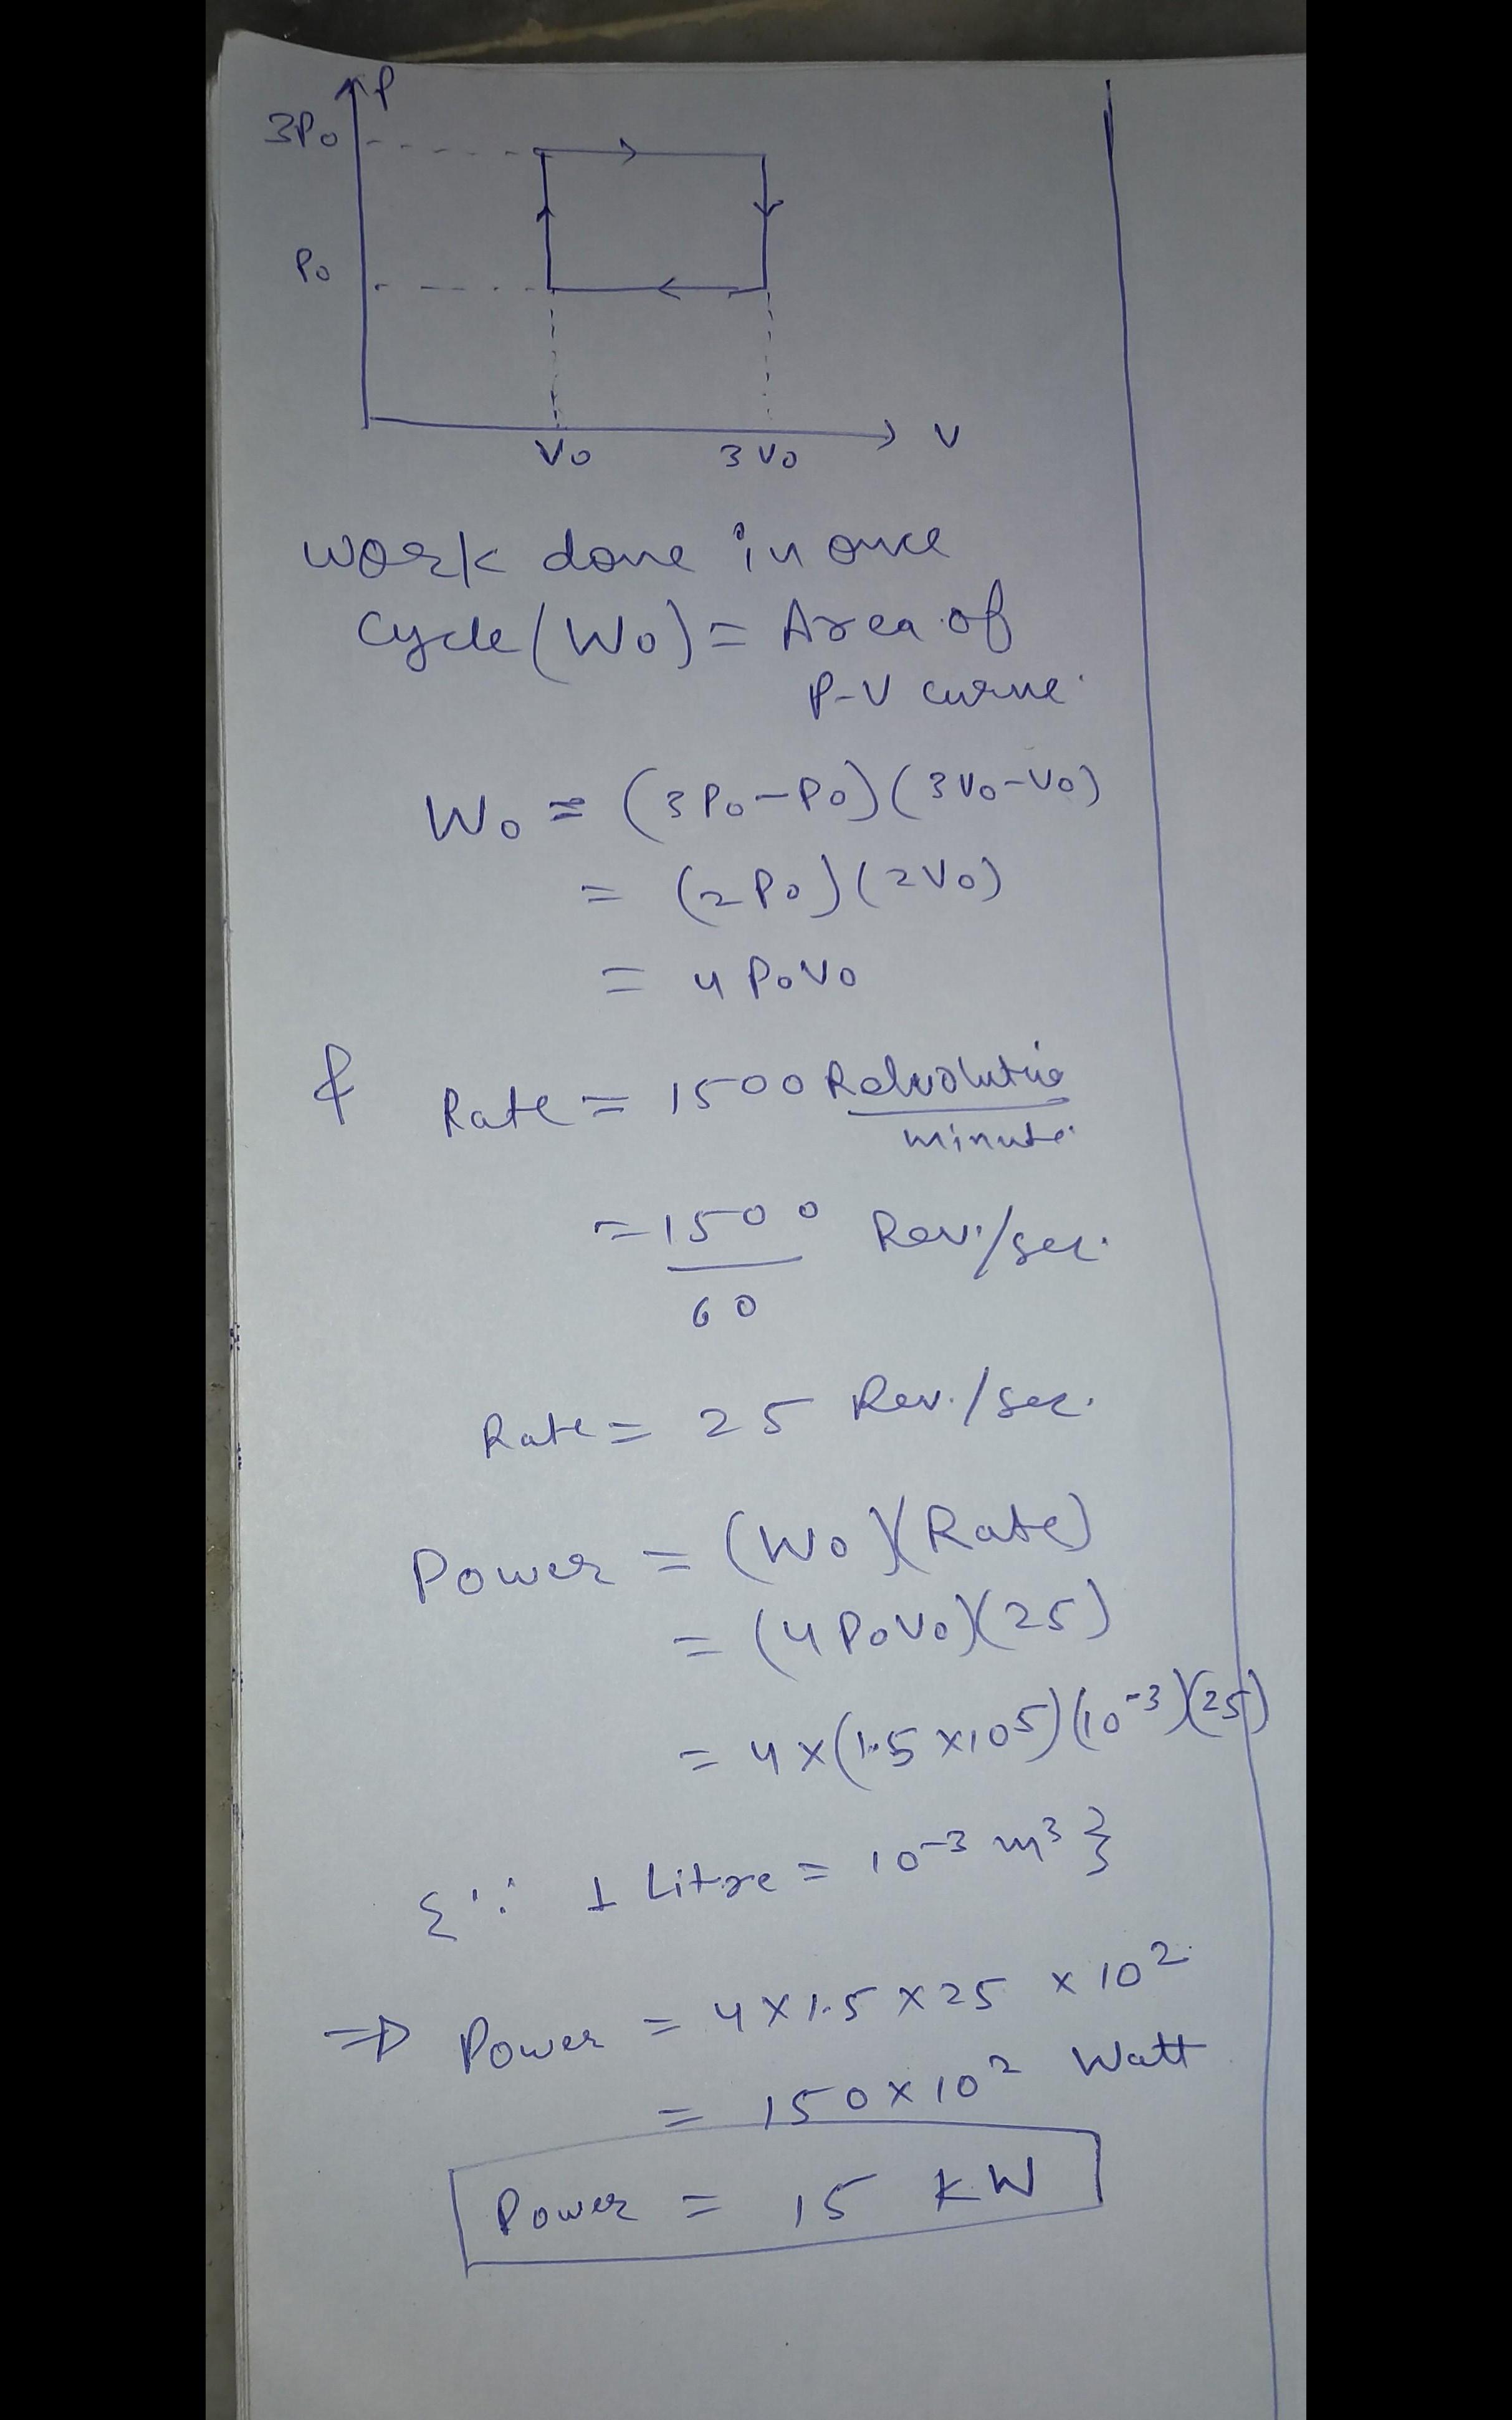 P
3P₀
P₀
V₀ 3V₀ V
work done in once
cycle (W₀) = Area of
P-V curve.
W₀ = (3P₀-P₀)(3V₀-V₀)
= (2P₀)(2V₀)
= 4P₀V₀
& Rate = 1500 Relvolutio
minute.
= 1500 Rev./sec.
60
Rate = 25 Rev./sec.
Power = (W₀)(Rate)
= (4P₀V₀)(25)
= 4×(1.5×10⁵)(10⁻³)(25)
{∵ 1 Litre = 10⁻³ m³}
⇒ Power = 4×1.5×25 ×10²
= 150×10² Watt
Power = 15 kW